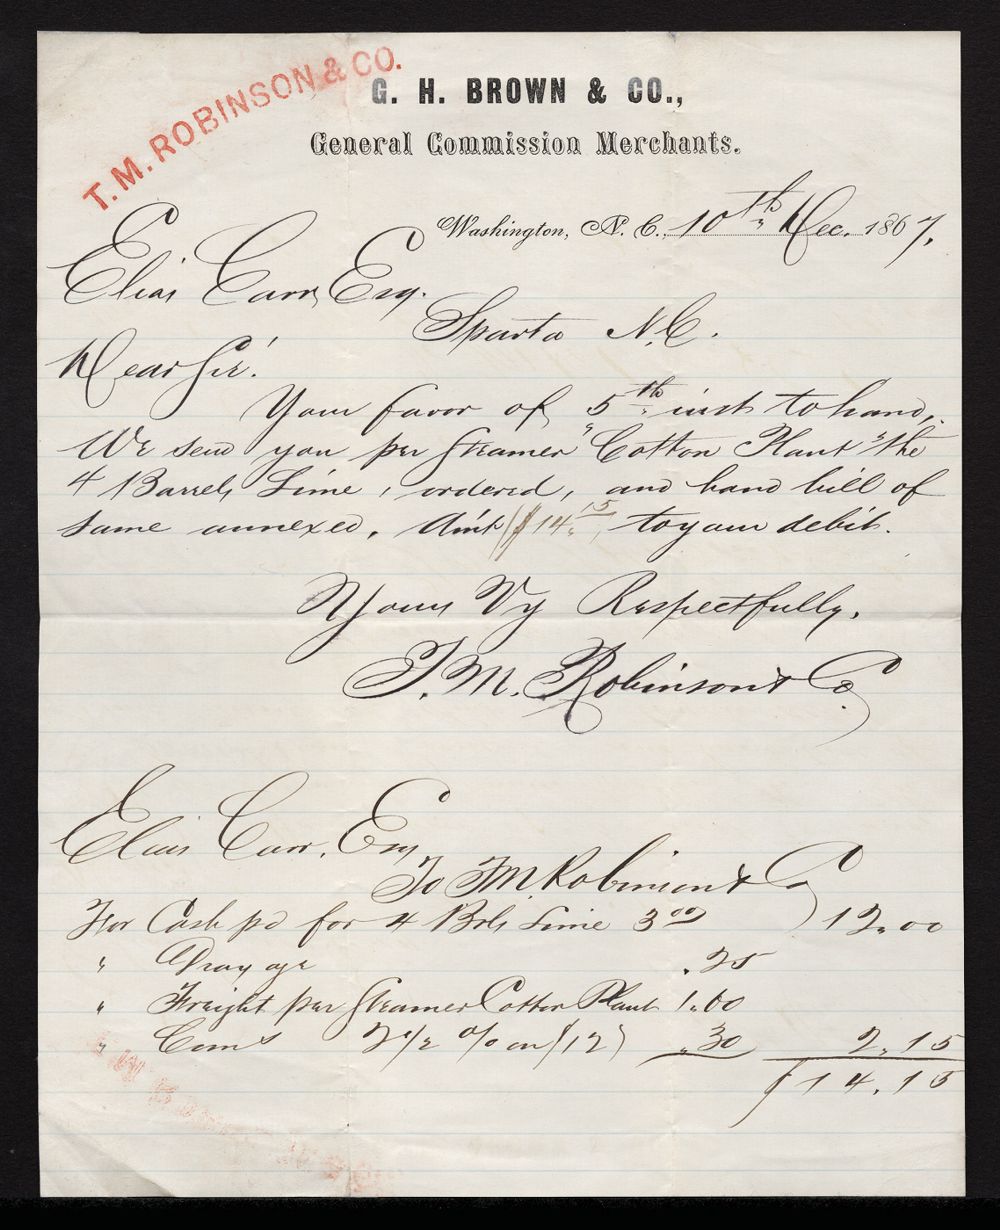 T. M. ROBINSON & CO.
G. H. BROWN & CO.,
General Commission Merchants.
Washington, N. C., 10th Dec. 1867.
Elias Carr, Esq.
Sparta N.C.
Dear Sir!
Your favor of 5th inst to hand,
We send you per Steamer "Cotton Plant" the
4 Barrels Lime, ordered, and hand bill of
same annexed. Am't ($14.15) to your debit.
Yours Vy Respectfully,
T. M. Robinson & Co.
Elias Carr, Esq
To T M Robinson & Co
For Cash pd for 4 Brls Lime 3 00 12.00
" Drayage .25
" Freight per Steamer Cotton Plant 1.60
" Coms 2 1/2 % on $12 .30 2.15
$14.15